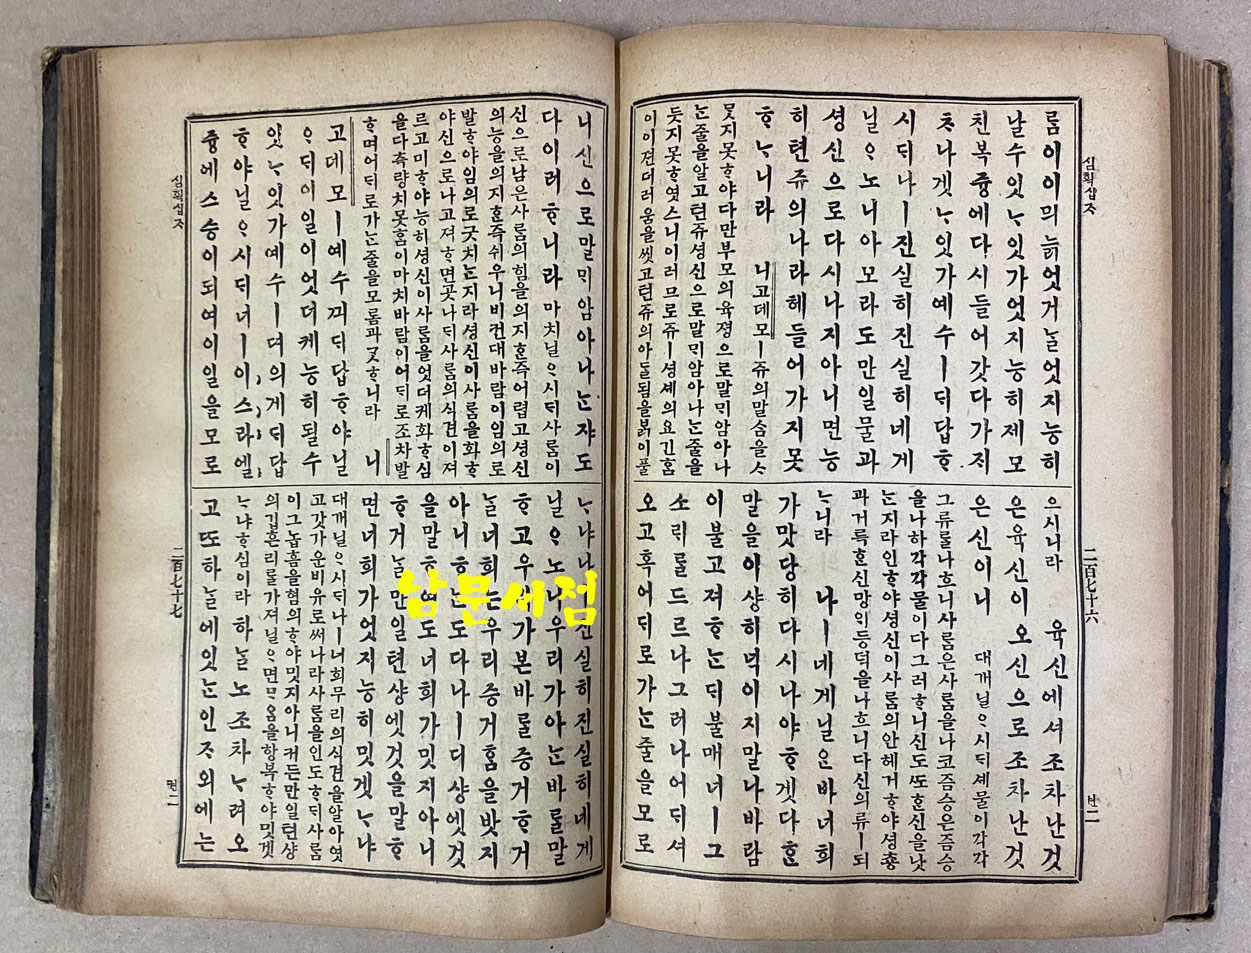 심획십ᄌᆞ
二百七十六
ᄅᆞᆷ이이믜늙엇거ᄂᆞᆯ엇지능히
날수잇ᄂᆞ잇가엇지능히제모
친복즁에다시들어갓다가저
ᄎᆞ나겟ᄂᆞ잇가예수ㅣᄃᆡ답ᄒᆞ
시ᄃᆡ나ㅣ진실히진실히네게
닐ᄋᆞ노니아모라도만일물과
셩신으로다시나지아니면능
히텬쥬의나라헤들어가지못
ᄒᆞᄂᆞ니라 니고데모ㅣ쥬의말ᄉᆞᆷ을
ᄭᆡᄃᆞᆺ지못ᄒᆞ야다만부모의육졍으로말ᄆᆡ암아나
ᄂᆞᆫ줄을알고텬쥬셩신으로말ᄆᆡ암아나ᄂᆞᆫ줄을
ᄯᅳᆺ지못ᄒᆞ엿스니이러므로쥬ㅣ셩셰의요긴홈
이이젼더러움을씻고텬쥬의아ᄃᆞᆯ됨을붉이풀
으시니라 육신에셔조차난것
은육신이오신으로조차난것
은신이니 대개닐ᄋᆞ시ᄃᆡ셰물이각각
그류ᄅᆞᆯ나흐니사ᄅᆞᆷ은사ᄅᆞᆷ을나코즘승은즘승
을나하각각물이다그러ᄒᆞ니신도ᄯᅩᄒᆞᆫ신을낫
ᄂᆞᆫ지라인ᄒᆞ야셩신이사ᄅᆞᆷ의안헤거ᄒᆞ야셩춍
과거륵ᄒᆞᆫ신망ᄋᆡ등덕을나흐니다신의류ㅣ되
ᄂᆞ니라 나ㅣ네게닐ᄋᆞᆫ바너희
가맛당히다시나야ᄒᆞ겟다ᄒᆞᆫ
말을이샹히넉이지말나바람
이불고져ᄒᆞᄂᆞᆫᄃᆡ불매너ㅣ그
소ᄅᆡᄅᆞᆯ드르나그러나어ᄃᆡ셔
오고혹어ᄃᆡ로가ᄂᆞᆫ줄을모로
니신으로말ᄆᆡ암아나ᄂᆞᆫ쟈도
다이러ᄒᆞ니라 마치닐ᄋᆞ시ᄃᆡ사ᄅᆞᆷ이
신으로남은사ᄅᆞᆷ의힘을의지ᄒᆞᆫ즉어렵고셩신
의능을의지ᄒᆞᆫ즉쉬우니비컨대바람이임의로
발ᄒᆞ야임의로긋치ᄂᆞᆫ지라셩신이사ᄅᆞᆷ을화ᄒᆞ
야신으로나고져ᄒᆞ면곳나ᄃᆡ사ᄅᆞᆷ의식견이져
르고미ᄒᆞ야능히셩신이사ᄅᆞᆷ을엇더케화ᄒᆞ심
을다측량치못홈이마치바람이어ᄃᆡ로조차발
ᄒᆞ며어ᄃᆡ로가ᄂᆞᆫ줄을모롬과ᄀᆞᆺᄒᆞ니라 니
고데모ㅣ예수ᄭᅴᄃᆡ답ᄒᆞ야닐
ᄋᆞᄃᆡ이일이엇더케능히될수
잇ᄂᆞ잇가예수ㅣ뎌의게ᄃᆡ답
ᄒᆞ야닐ᄋᆞ시ᄃᆡ너ㅣ이스라엘
즁에스승이되여이일을모로
ᄂᆞ냐나ㅣ진실히진실히네게
닐ᄋᆞ노니우리가아ᄂᆞᆫ바ᄅᆞᆯ말
ᄒᆞ고우리가본바ᄅᆞᆯ증거ᄒᆞ거
ᄂᆞᆯ너희ᄂᆞᆫ우리증거홈을밧지
아니ᄒᆞᄂᆞᆫ도다나ㅣ디샹엣것
을말ᄒᆞ여도너희가밋지아니
ᄒᆞ거ᄂᆞᆯ만일텬샹엣것을말ᄒᆞ
면너희가엇지능히밋겟ᄂᆞ냐
대개닐ᄋᆞ시ᄃᆡ나ㅣ너희무리의식견을알아엿
고갓가운비유로써나라사ᄅᆞᆷ을인도ᄒᆞᄃᆡ사ᄅᆞᆷ
이그놉흠을혐의ᄒᆞ야밋지아니커든만일텬샹
의깁흔리ᄅᆞᆯ가져닐ᄋᆞ면ᄆᆞᄋᆞᆷ을항복ᄒᆞ야밋겟
ᄂᆞ냐ᄒᆞ심이라하ᄂᆞᆯ노조차ᄂᆞ려오
고ᄯᅩ하ᄂᆞᆯ에잇ᄂᆞᆫ인ᄌᆞ외에는
심획십ᄌᆞ
二百七十七
남문서점